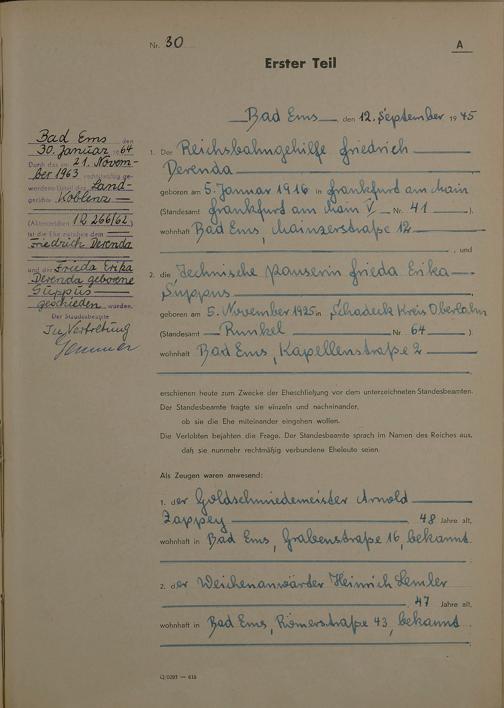 Nr. 30
A
Erster Teil
Bad Ems, den 12. September 1945
1. Der Reichsbahngehilfe Friedrich
Derenda
geboren am 5. Januar 1916 in Frankfurt am Main
(Standesamt Frankfurt am Main V Nr. 41 ).
wohnhaft Bad Ems, Mainzerstraße 12
, und
2. die Technische Pauserin Frieda Erika
Suppus
geboren am 5. November 1925 in Schadeck Kreis Oberlahn
(Standesamt Runkel Nr. 64 ).
wohnhaft Bad Ems, Kapellenstraße 2
erschienen heute zum Zwecke der Eheschließung vor dem unterzeichneten Standesbeamten.
Der Standesbeamte fragte sie einzeln und nacheinander,
ob sie die Ehe miteinander eingehen wollen.
Die Verlobten bejahten die Frage. Der Standesbeamte sprach im Namen des Reiches aus,
daß sie nunmehr rechtmäßig verbundene Eheleute seien.
Als Zeugen waren anwesend:
1. der Goldschmiedemeister Arnold
Zappey 48 Jahre alt,
wohnhaft in Bad Ems, Grabenstraße 16, bekannt.
2. der Weichenanwärter Heinrich Lemler
47 Jahre alt,
wohnhaft in Bad Ems, Römerstraße 43, bekannt.
Bad Ems den
30. Januar 1964
Durch das am 21. Novem-
ber 1963 rechtskräftig ge-
wordene Urteil des Land-
gerichts Koblenz
(Aktenzeichen 1 R 266/62)
ist die Ehe zwischen dem
Friedrich Derenda
und der Frieda Erika
Derenda geborene
Suppus
geschieden worden.
Der Standesbeamte
In Vertretung